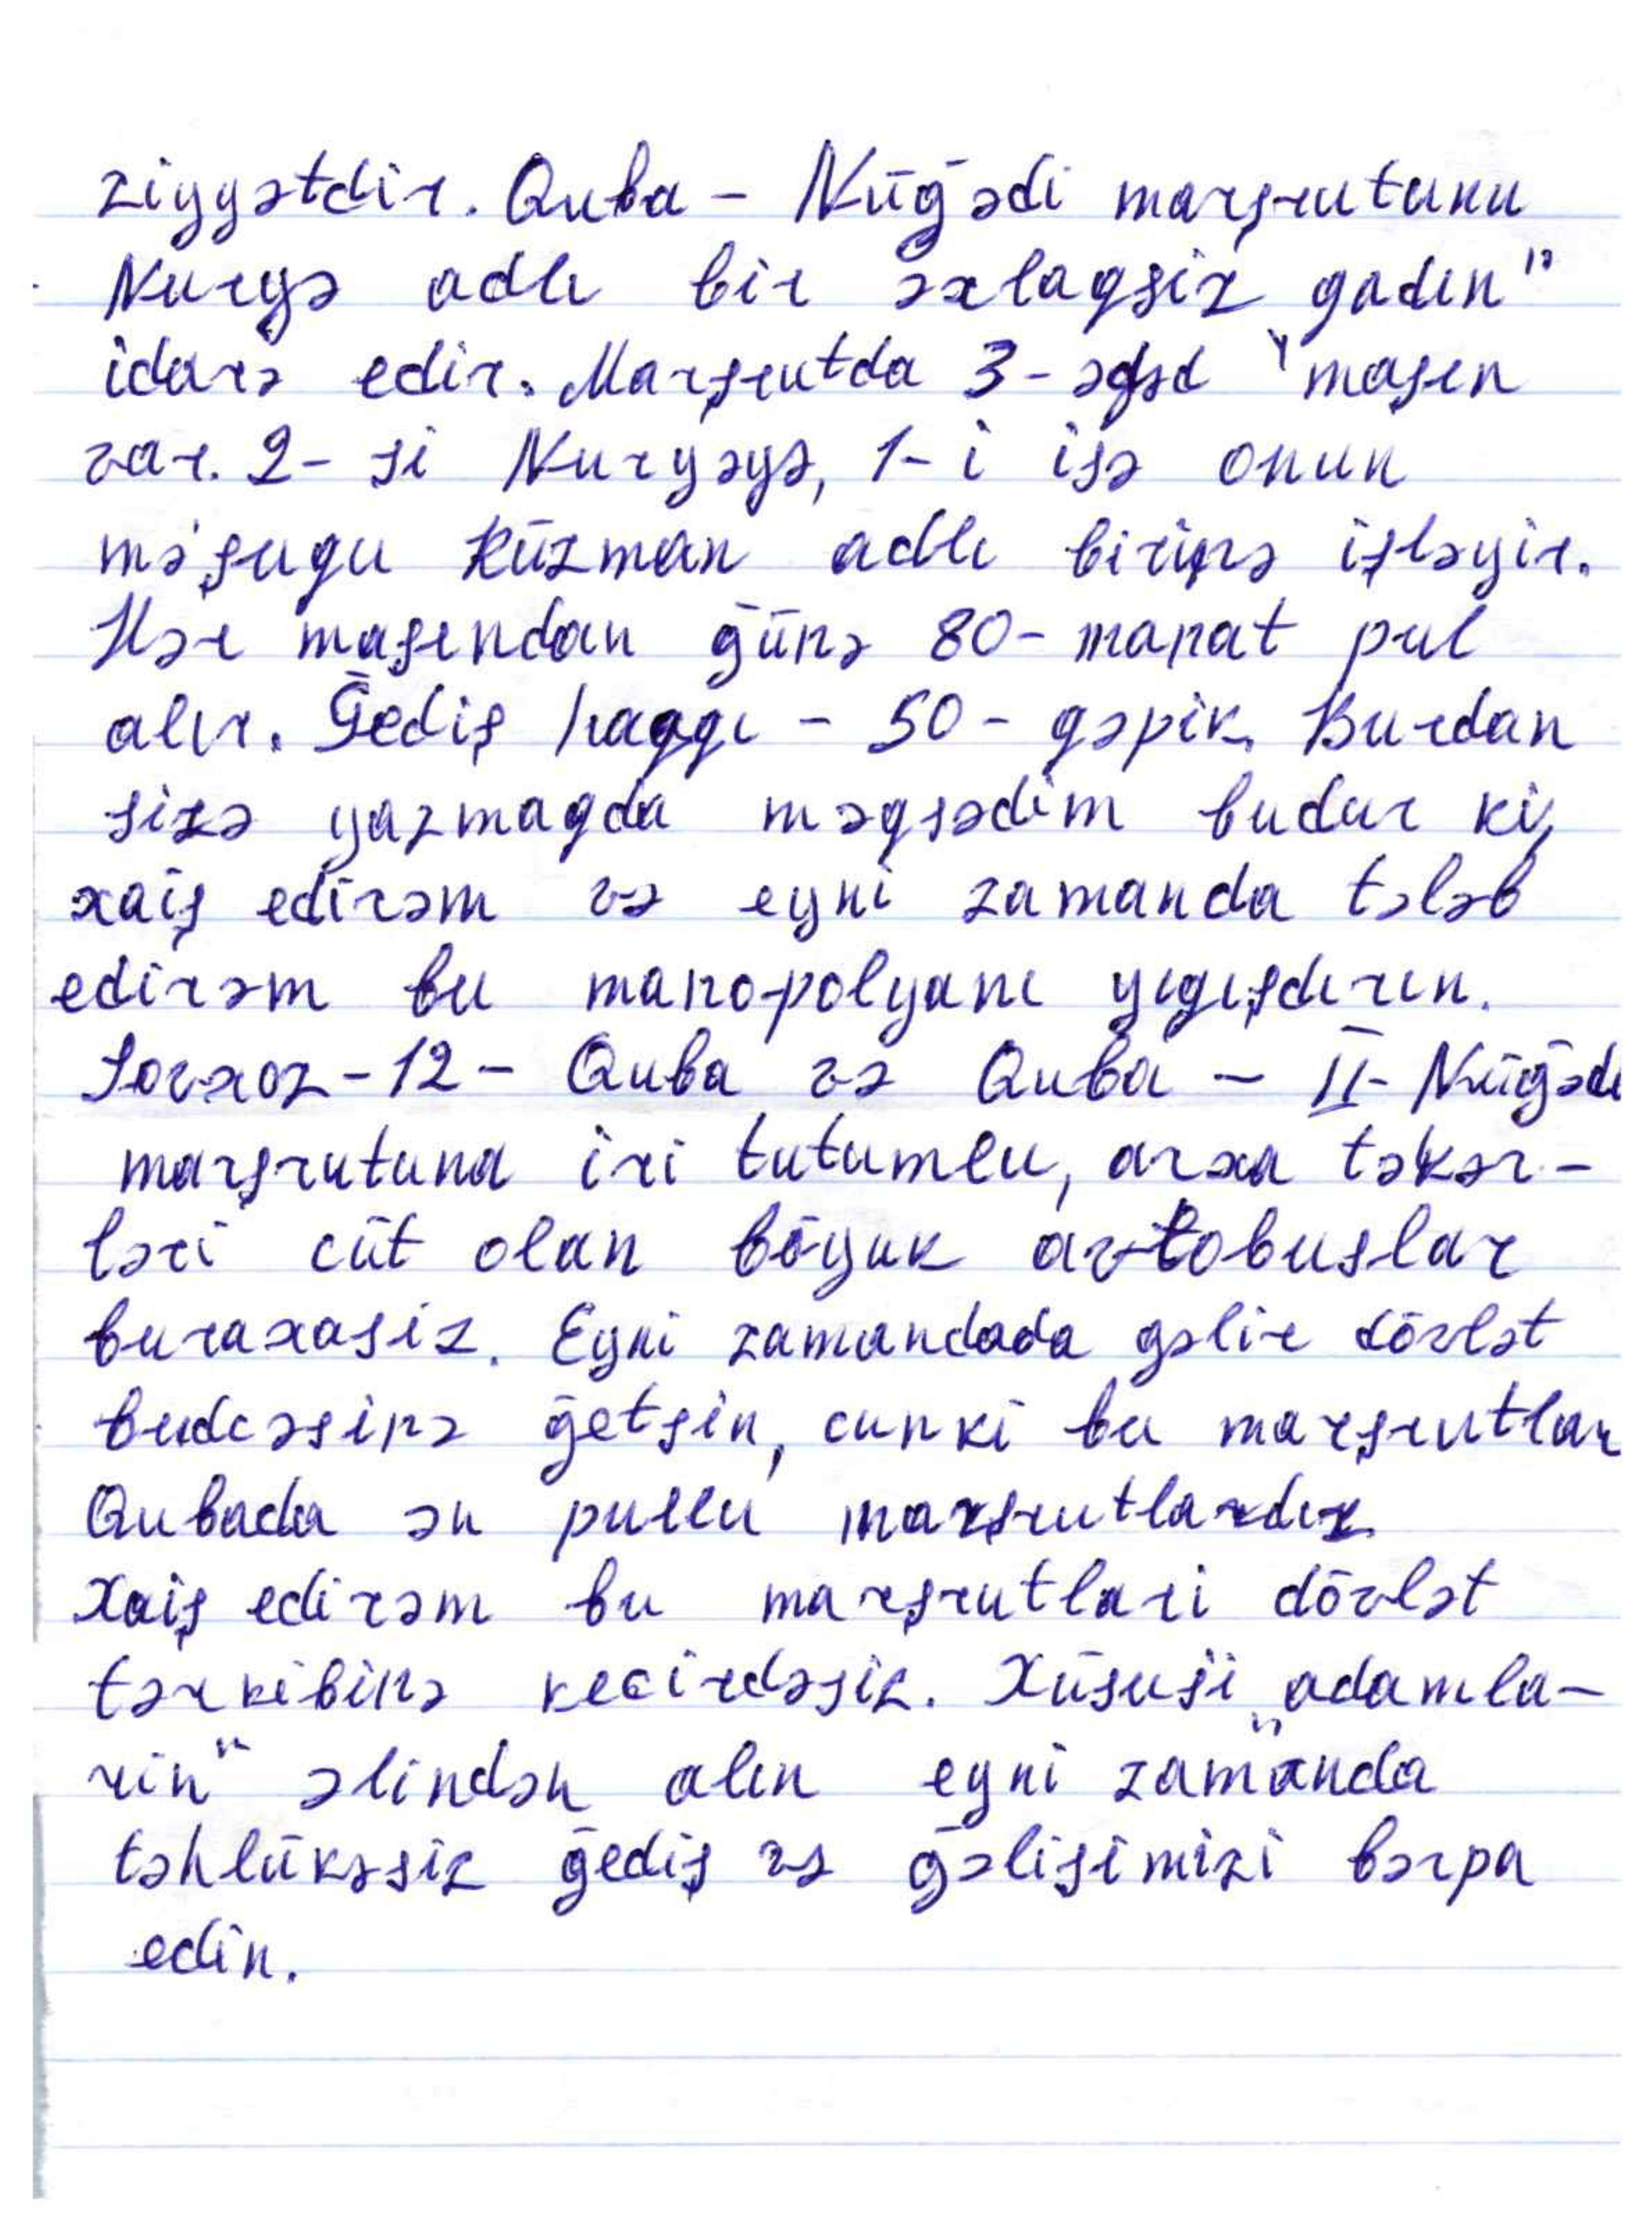 ziyyətdir. Quba - Nüğədi marşrutunu
Nuryə adlı bir əxlaqsiz qadın"
idarə edir. Marşrutda 3-ədəd "maşın
var. 2-si Nuryəyə, 1-i isə onun
mə'şuqu Rüzman adlı birinə işləyir.
Hər maşından günə 80-manat pul
alır. Gediş haqqı - 50-qəpik. Burdan
sizə yazmaqda məqsədim budur ki,
xaiş edirəm və eyni zamanda tələb
edirəm bu manopolyanı yıgışdırın.
Sovxoz-12- Quba və Quba - II- Nüğədi
marşrutuna iri tutumlu, arxa təkər-
ləri cüt olan böyuk avtobuslar
buraxasiz. Eyni zamandada gəlir dövlət
budcəsinə getsin, cunki bu marşrutlar
Qubada ən pullu marşrutlardır.
Xaiş edirəm bu marşrutlari dövlət
tərkibinə kecirdəsiz. Xüsusi „adamla-
rin" əlindən alın eyni zamanda
təhlükəsiz gediş və gəlişimizi bərpa
edin.